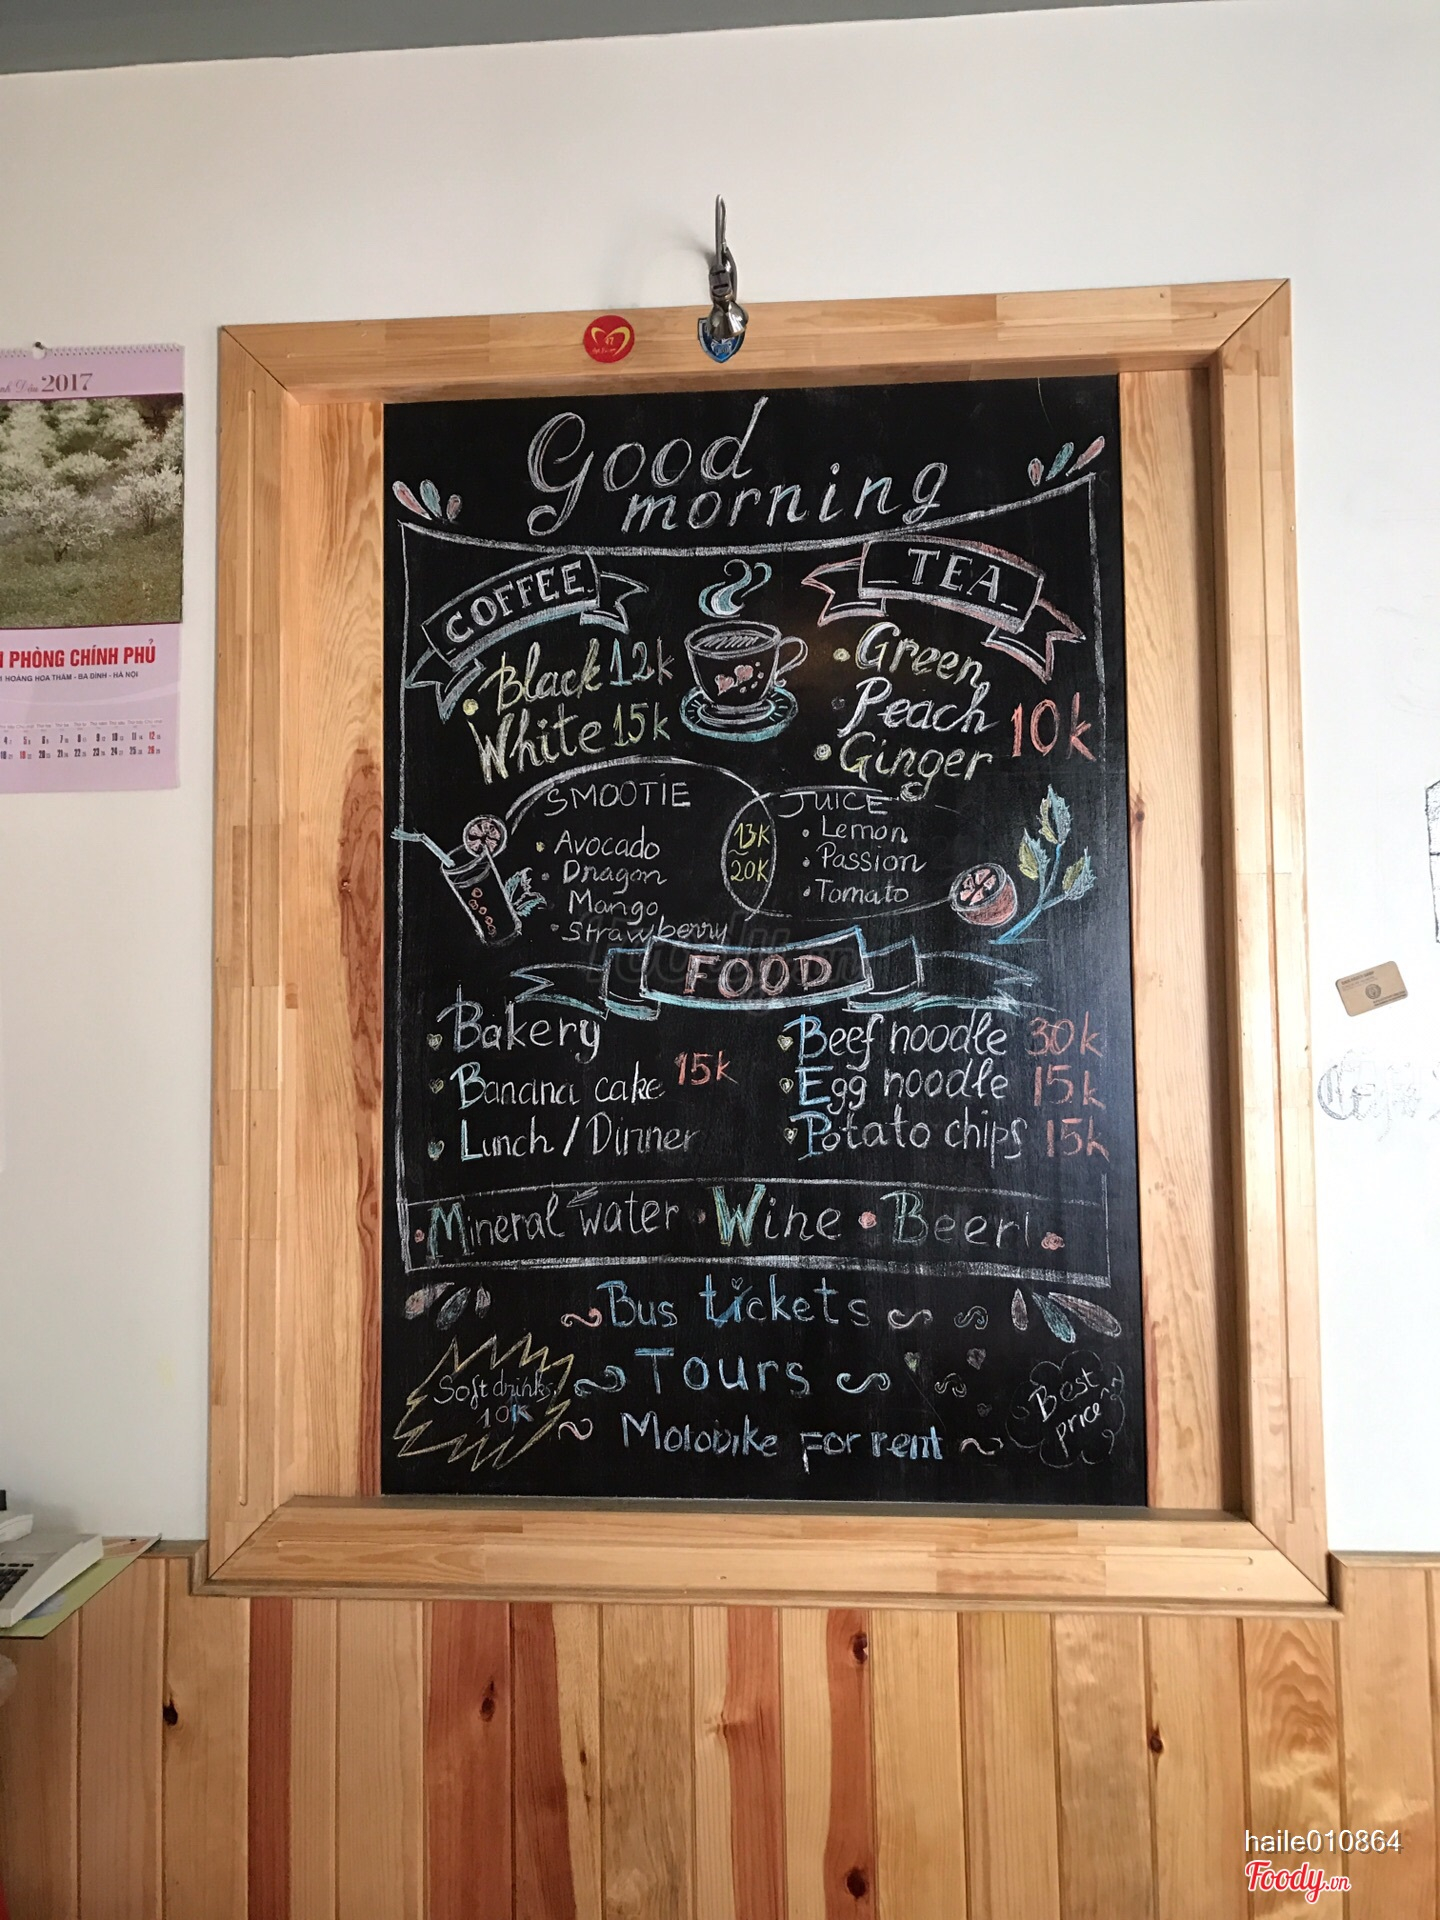 Good
morning
COFFEE
Black 12k
White 15k
TEA
Green
Peach
Ginger
10k
SMOOTIE
Avocado
Dragon
Mango
Strawberry
13K
20K
JUICE
Lemon
Passion
Tomato
FOOD
Bakery
Banana cake
15k
Lunch / Dinner
Beef noodle 30k
Egg noodle 15k
Potato chips 15k
Mineral water • Wine • Beer!
Bus tickets
Tours
Motobike For rent
Soft drinks
10K
Best
price
2017
PHÒNG CHÍNH PHỦ
HOÀNG HOA THÁM - BA ĐÌNH - HÀ NỘI
Foody.vn
haile010864
Foody.vn